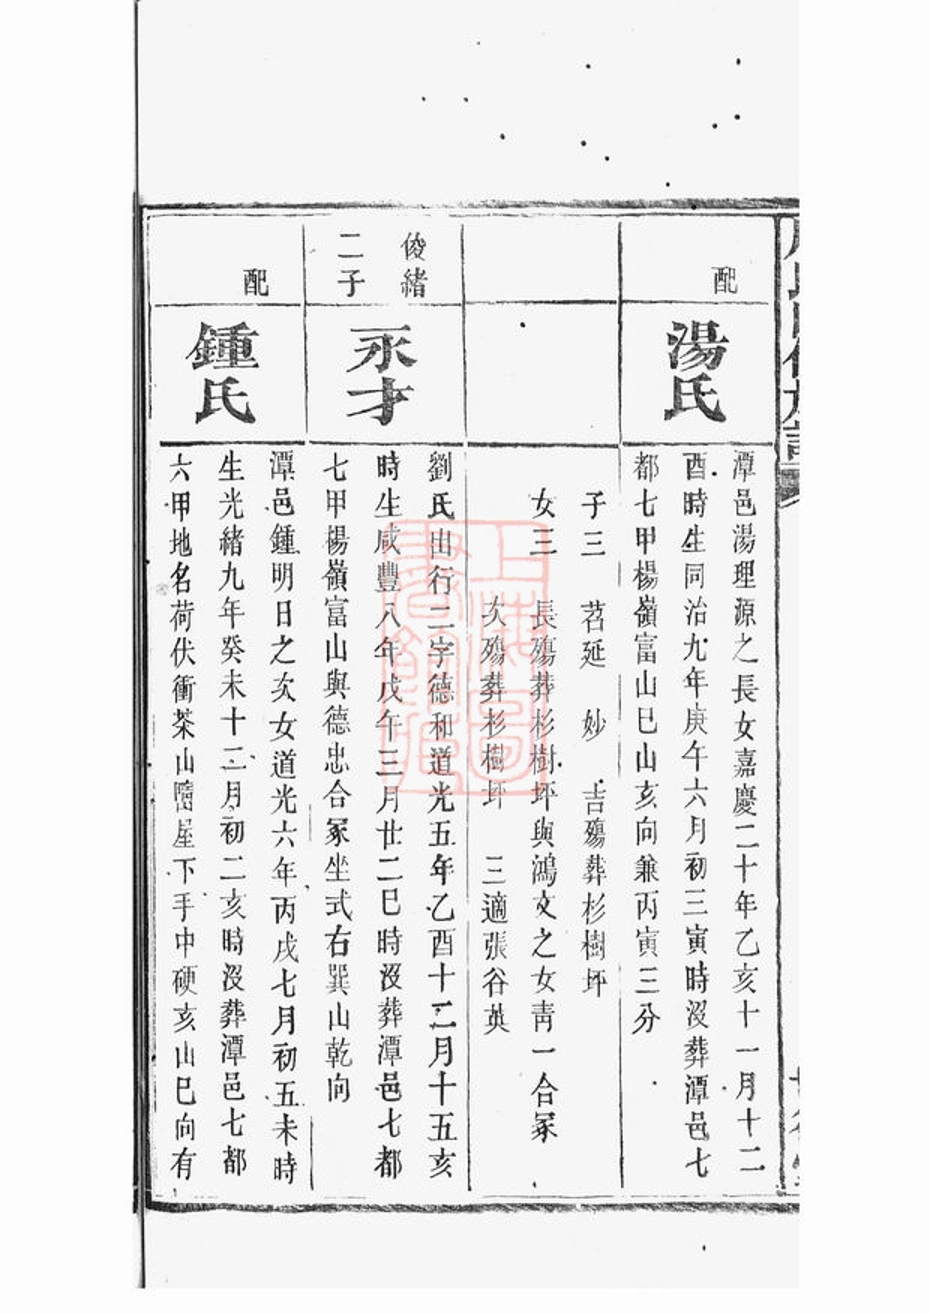 配
湯氏
潭邑湯理源之長女嘉慶二十年乙亥十一月十二
酉時生同治九年庚午六月初三寅時沒葬潭邑七
都七甲楊嶺富山巳山亥向兼丙寅三分
子三　苕延　妙　吉殤葬杉樹坪
女三　長殤葬杉樹坪與鴻文之女靑一合冢
次殤葬杉樹坪　三適張谷英
俊緒
二子
永才
劉氏出行二字德和道光五年乙酉十二月十五亥
時生咸豐八年戊午三月廿二巳時沒葬潭邑七都
七甲楊嶺富山與德忠合冢坐式右巽山乾向
配
鍾氏
潭邑鍾明日之次女道光六年丙戌七月初五未時
生光緒九年癸未十二月初二亥時沒葬潭邑七都
六甲地名荷伏衝茶山屋下手中硬亥山巳向有